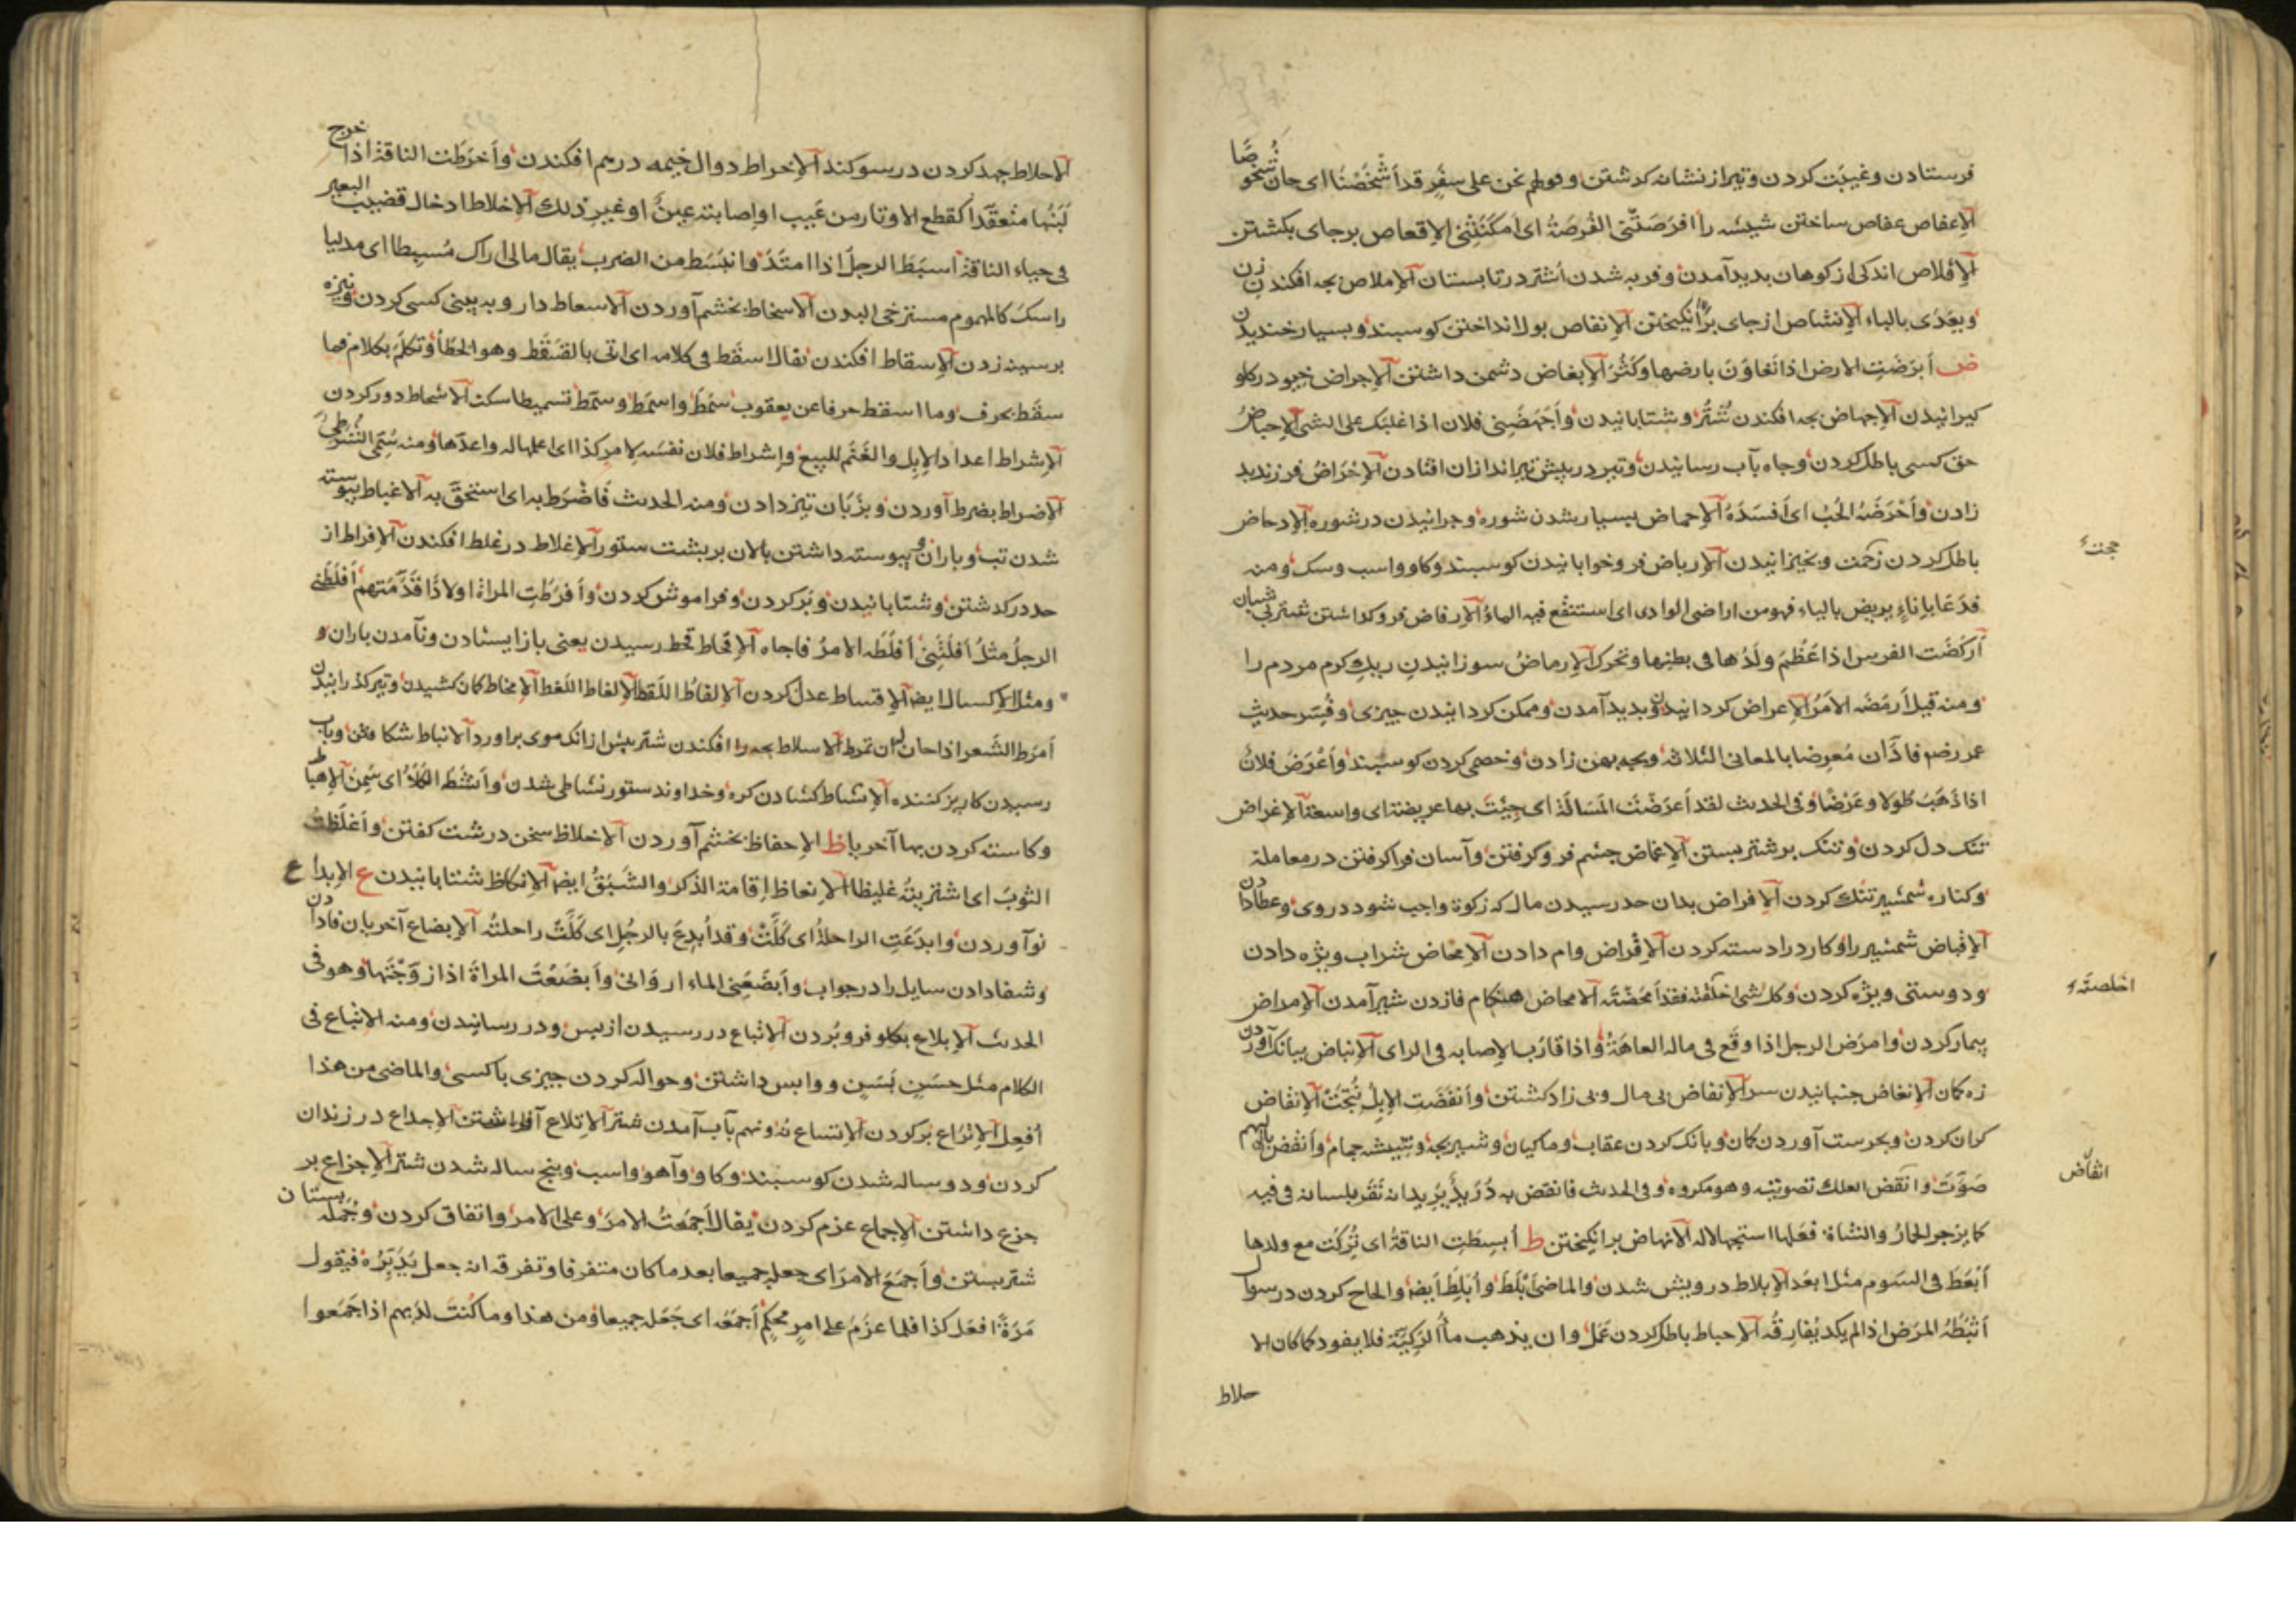 فرستادن وغیبت کردن وتیر از نشانه کذشتن وقولهم نحن علی سفر قد اَشْخَصْنا ای حان شُخوصًا
الاِعفاص عفاص ساختن شیشه را افرَصَتْنی الفُرصَةُ ای اَمکَنَتْنی الاِقعاص برجای بکشتن
الاِقلاص اندکی از کوهان بدید آمدن وفربه شدن اشتر در تابستان الاِملاص بچه افکندن زن
ویعدّی بالباء الاِنشاص از جای برانکیختن الاِنفاص بول انداختن کوسبند وبسیار خندیدن
ض اَبرَضَتِ الارض اذا تعاوَنَ بارضها وکَثُرَ الاِبغاض دشمن داشتن الاِجراض خیو در کلو
کیرانیدن الاِجهاض بچه افکندن شتر وشتابانیدن واَجهَضَنی فلان اذا غلبک علی الشئ الاِحباض
حق کسی باطل کردن وچاه بآب رسانیدن وتیر در پیش تیرانداز ان افتادن الاِحْرَاض فرزند بد
زادن واَحْرَضَهُ الحُبّ ای اَفسَدَهُ الاِحماض بسیار شدن شوره وچرانیدن در شوره الاِدحاض
باطل کردن حجت وبخیزانیدن الاِرباض فرو خوابانیدن کوسبند وکاو واسب وسک ومنه
فدَعَا باِناءٍ یریض بالیاء فهو من اراضی الوادی ای استنقع فیه الماءُ الاِرفاض فرو کذاشتن شتر بی شبان
اَرکَضَت الفرس اذا عَظُمَ ولَدُها فی بطنها وتحرک الاِرماضُ سوزانیدن ریکِ کرم مردم را
ومنه قیل اَرمَضَه الاَمرُ الاِعراض کردانیدن وبدید آمدن وممکن کردانیدن چیزی وفُسّر حدیث
عمر رضه فادّان مُعرِضا بالمعانی الثلاثه وبچه پهن زادن وخصی کردن کوسبند واَعْرَضَ فلانٌ
اذا ذَهَبَ طولا وعَرْضًا وفی الحدیث لقد اَعرَضْتَ المَسالَة ای جِئْتَ بها عریضة ای واسعة الاِغراض
تنک دل کردن وتنک بر شتر بستن الاِغماض چشم فرو کرفتن وآسان فراکرفتن در معاملة
وکناره شمشیر تنک کردن الاِفراض بدان حد رسیدن مال که زکوة واجب شود در وی وعطا دادن
الاِقباض شمشیر را وکارد را دسته کردن الاِقراض وام دادن الاِمحاض شراب ویژه دادن
ودوستی ویژه کردن وکل شئ اخلَصْتَه فقد اَمحَضْتَه الامخاض هنکام فا زدن شیر آمدن الاِمراض
بیمار کردن وامرَضَ الرجل اذا وقَع فی ماله العاهَةُ واذا قارَبَ الاِصابه فی الرای الاِنباض ببانک آوردن
زه کمان الاِنغاض جنبانیدن سر الاِنفاض بی مال وبی زاد کشتن واَنفَضَت الاِبِلُ نُتِجَتْ الاِنقاض
کران کردن وبحرست آوردن کمان وبانک کردن عقاب وماکیان وشیر بچه وشیشه حجام واَنقَضَ بالبهم
صَوَّتَ وانقَضَ العلک تصویته وهو مکروه وفی الحدیث فانقض به دُرَیدٌ یُرید انه نَقَر بلسانه فی فیه
کما یزجر الحمارُ والشاة فعَلها استجهالا له الانهاض برانکیختن ط اُبسِطَتِ الناقةُ ای تُرِکَت مع ولدها
اَبعَطَ فی السَوم مثل ابعَد الاِبلاط درویش شدن والماضی اَبْلَطَ واُبلِطَ ایضا والحاح کردن در سوال
اَثبَطَهُ المَرَض اذا لم یکد یُفارِقُه الاِحباط باطل کردن عَمَل وان یذهب ماءُ الرَکِیّة فلا یعود کما کان الا
حلاط
حجت
اخلصتَه
انقاض
الاحلاط جهد کردن در سوکند الاِخراط دوال خیمه درهم افکندن واَخرَطَت الناقة اذا خرج
لَبَنُها متعقّدا کقطع الاوتار من عَیب او اِصابتْه عینٌ او غیر ذلک الاِخلاط ادخال قضیب البعیر
فی حیاء الناقة اَسبَطَ الرجلُ اذا امتَدَّ وانبَسَط من الضرب یقال ما لی اراک مُسبِطا ای مدلیا
راسکَ کالمهموم مسترخی البدن الاسخاط بخشم آوردن الاسعاط دارو به بینی کسی کردن ونیزه
بر سینه زدن الاِسقاط افکندن یقال اسقَط فی کلامه ای اتی بالسَقَط وهو الخطأ وتکلّم بکلام فما
سقَط بحرف وما اسقط حرفا عن یعقوب سَمَطَ واسمَط وسَمّط تسمیطا سکت الاشحاط دور کردن
الاِشراط اعداد الاِبِل والغَنَم للبیع واِشراط فلان نفسَه لامر کذا ای اعلمها له واعدّها ومنه سُمّی الشُرَطیّ
الاِضراط بضرط آوردن وبزبان تیز دادن ومنه الحدیث فَاَضْرَط به ای استخفّ به الاغباط پیوسته
شدن تب وباران وپیوسته داشتن پالان بر پشت ستور الاِغلاط در غلط افکندن الاِفراط از
حد درکذشتن وشتابانیدن وپُر کردن وفراموش کردن واَفرَطَتِ المراة اولادًا قَدَّمَتهم اَفلَطَنی
الرجلُ مثلُ اَفلَتَنِی اَفلَطَه الامرُ فاجاه الاِقحاط قحط رسیدن یعنی باز ایستادن ونآمدن باران و
ومثل الاِکسال ایضا الاِقساط عدل کردن الاِلقاطُ اللَقط الاِلغاط اللَغط الاِمخاط کمان کشیدن وتیر کذرانیدن
اَمرَط الشَعر اذا حان له ان تمرط الاملاط بچه را افکندن شتر پیش از انک موی براورد الانباط شکافتن وبآب
رسیدن کاریز کننده الاِنشاط کشادن کره وخداوند ستور نشاطی شدن واَنشَطَ الکَلَأ ای سَمِنَ الاِهباط
وکاسته کردن بها آخریان ظ الاِحفاظ بخشم آوردن الاغلاظ سخن درشت کفتن واَغلَظتُ
الثوبَ ای اشتریتُه غلیظا الاِنعاظ اِقامة الذکر والشَبَقُ ایضا الاِنکاظ شتابانیدن ع الاِبداع
نو آوردن وابدَعَتِ الراحلةُ ای کَلَّتْ وقد اُبدِعَ بالرجُلِ ای کَلَّتْ راحلتُه الاِبضاع آخریان فا دادن
وشفا دادن سایل را در جواب واَبضَعَنِی الماء ارْوَانی واَبضَعْتَ المراةَ اذا زوّجْتَها وهو فی
الحدیث الاِبلاع بکلو فرو بُردن الاتْباع در رسیدن از پس ودر رسانیدن ومنه الاتباع فی
الکلام مثل حسَنٍ بَسَنٍ ووا پس داشتن وحواله کردن چیزی با کسی والماضی من هذا
اُفعِل الاِتراع پر کردن الاتساع نُه ونهم بآب آمدن شتر الاِتلاع افراشتن الاِجداع در زندان
کردن ودو ساله شدن کوسبند وکاو وآهو واسب وپنج ساله شدن شتر الاِجزاع بر
جزع داشتن الاِجماع عزم کردن یقال اَجمَعْتُ الامرَ وعلی الامر واتفاق کردن وجُمله پستان
شتر بستن واَجمَعَ الامرَ ای جعله جمیعا بعد ما کان متفرقا وتفرقه انه جعل یُدَبِّرُه فیقول
مَرّةً افعَل کذا فلما عزَمَ علی امرٍ مُحکمٍ اَجمَعَه ای جَعَله جمیعا ومن هذا وما کُنتَ لدَیهم اذ اجمَعوا